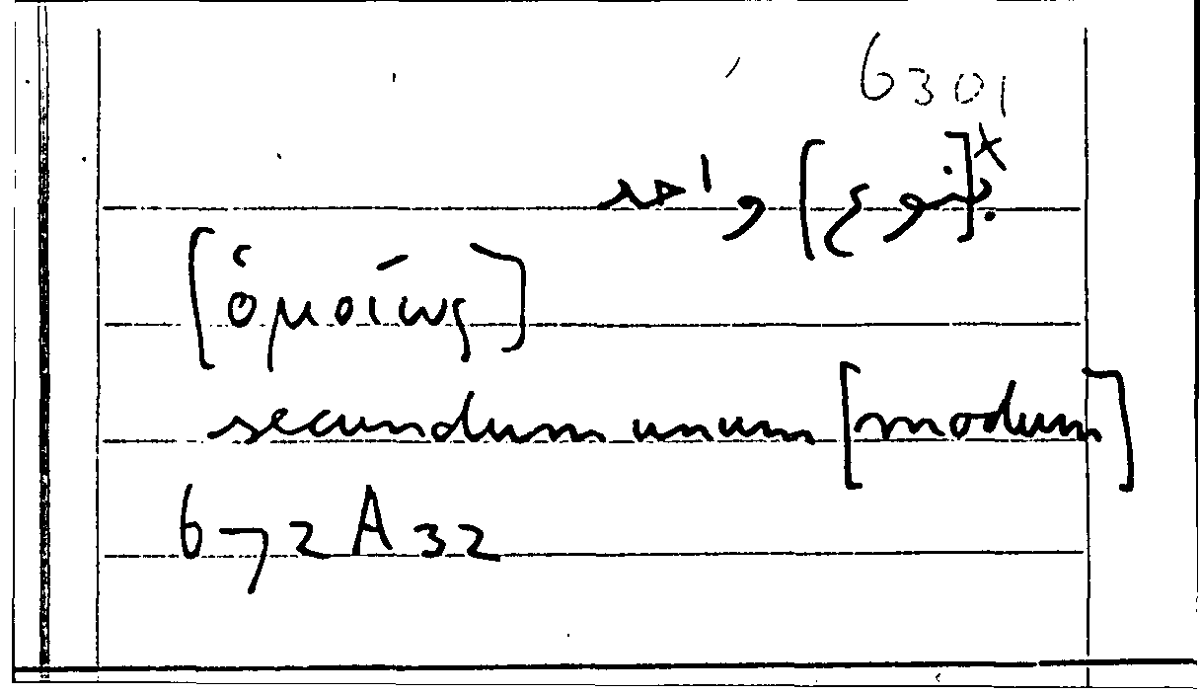 6301
[بنوع]* واحد
[ὁμοίως]
secundum unum [modum]
672 A 32